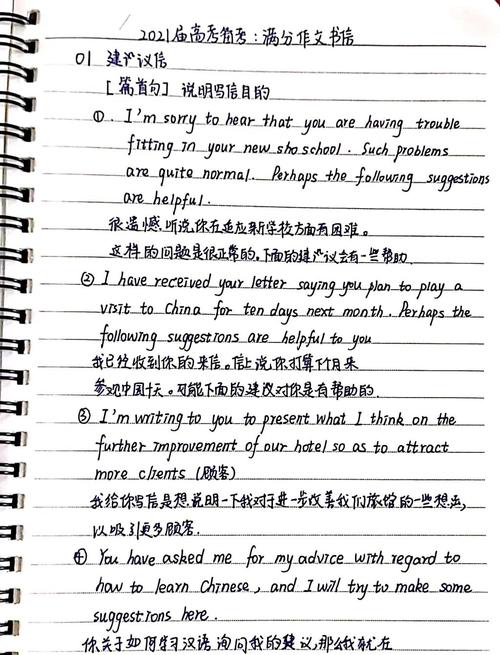 2021届高考备考：满分作文书信
01 建议信
[篇首句] 说明写信目的
①. I'm sorry to hear that you are having trouble
fitting in your new sho school. Such problems
are quite normal. Perhaps the following suggestions
are helpful.
很遗憾听说你在适应新学校方面有困难。
这样的问题是很正常的。下面的建议会有一些帮助
② I have received your letter saying you plan to play a
visit to China for ten days next month. Perhaps the
following suggestions are helpful to you
我已经收到你的来信。信上说你打算下个月来
参观中国十天。可能下面的建议对你是有帮助的.
③ I'm writing to you to present what I think on the
further improvement of our hotel so as to attract
more clients (顾客)
我给你写信是想说明一下我对于进一步改善我们旅馆的一些想法,
以吸引更多顾客.
④ You have asked me for my advice with regard to
how to learn Chinese, and I will try to make some
suggestions here.
你关于如何学习汉语询问我的建议,那么我就在